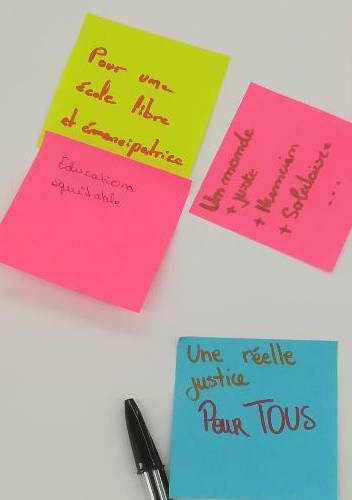 Pour une
école libre
et émancipatrice
Education
équitable
Un monde
+ juste
+ Humain
+ Solidaire
...
Une réelle
justice
POUR TOUS